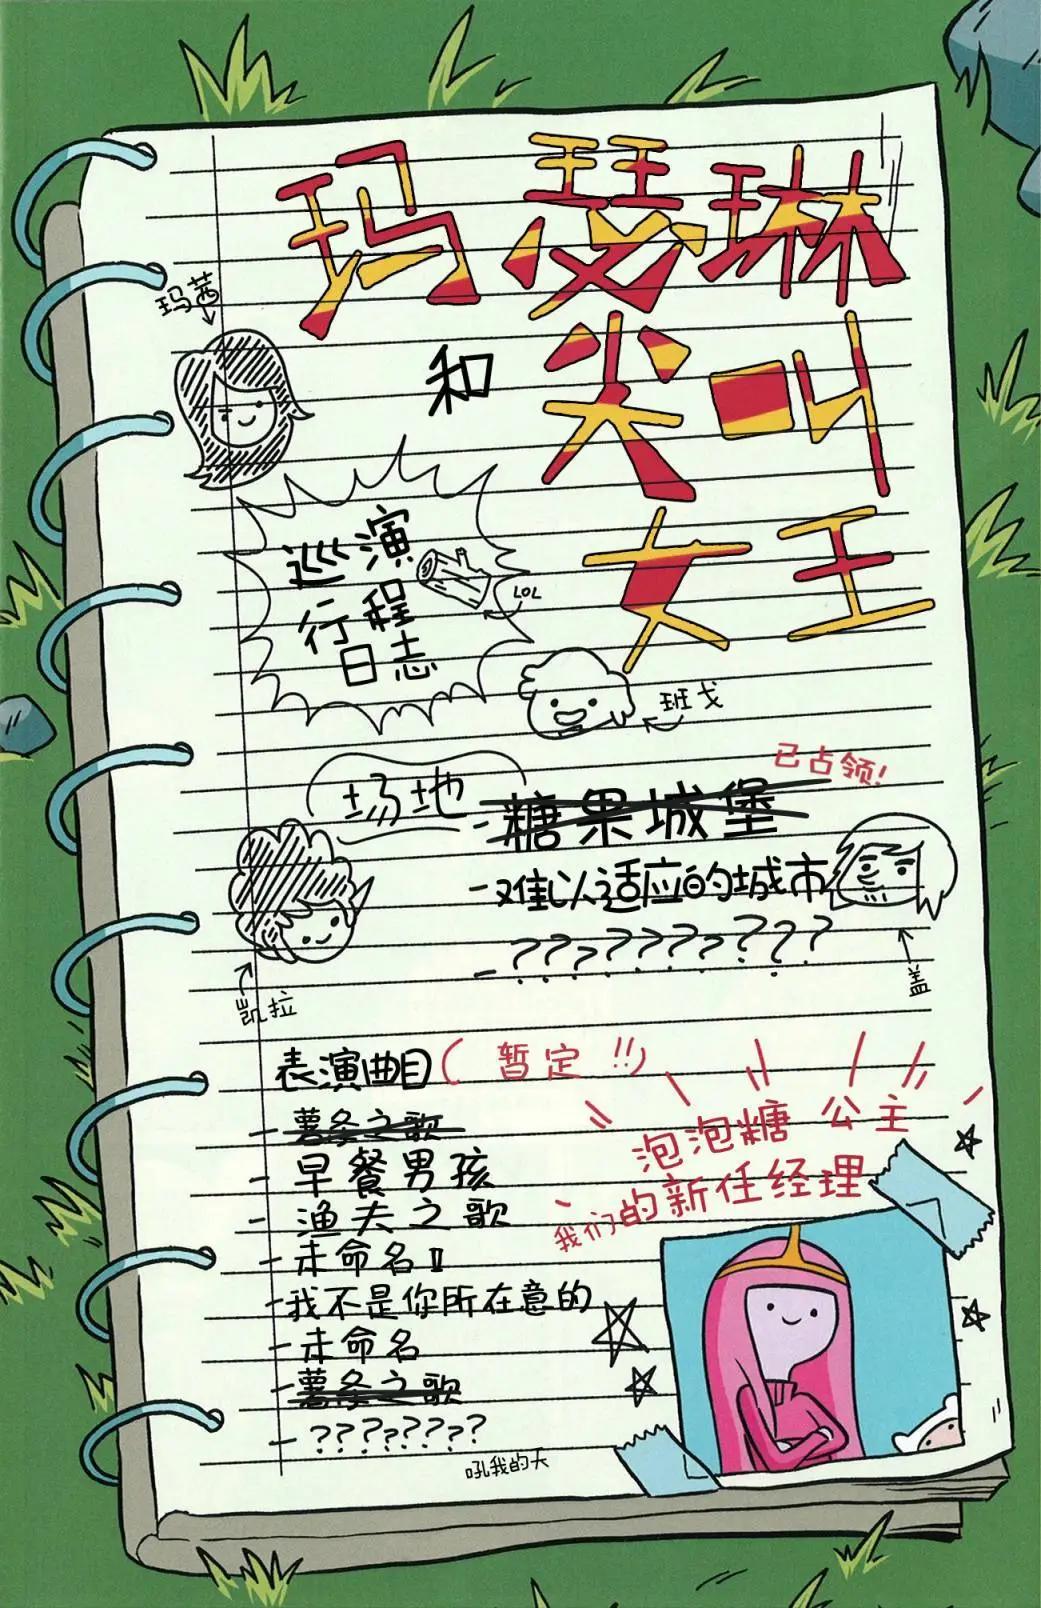 玛瑟琳
玛茜
和
尖叫
女王
巡演
行程
日志
LOL
班戈
场地
已占领!
-糖果城堡
-难以适应的城市
-??????????
凯拉
盖
表演曲目(暂定!!)
-薯条之歌
-早餐男孩
-渔夫之歌
-未命名Ⅱ
-我不是你所在意的
-未命名
-薯条之歌
-????????
泡泡糖 公主
我们的新任经理
吼我的天